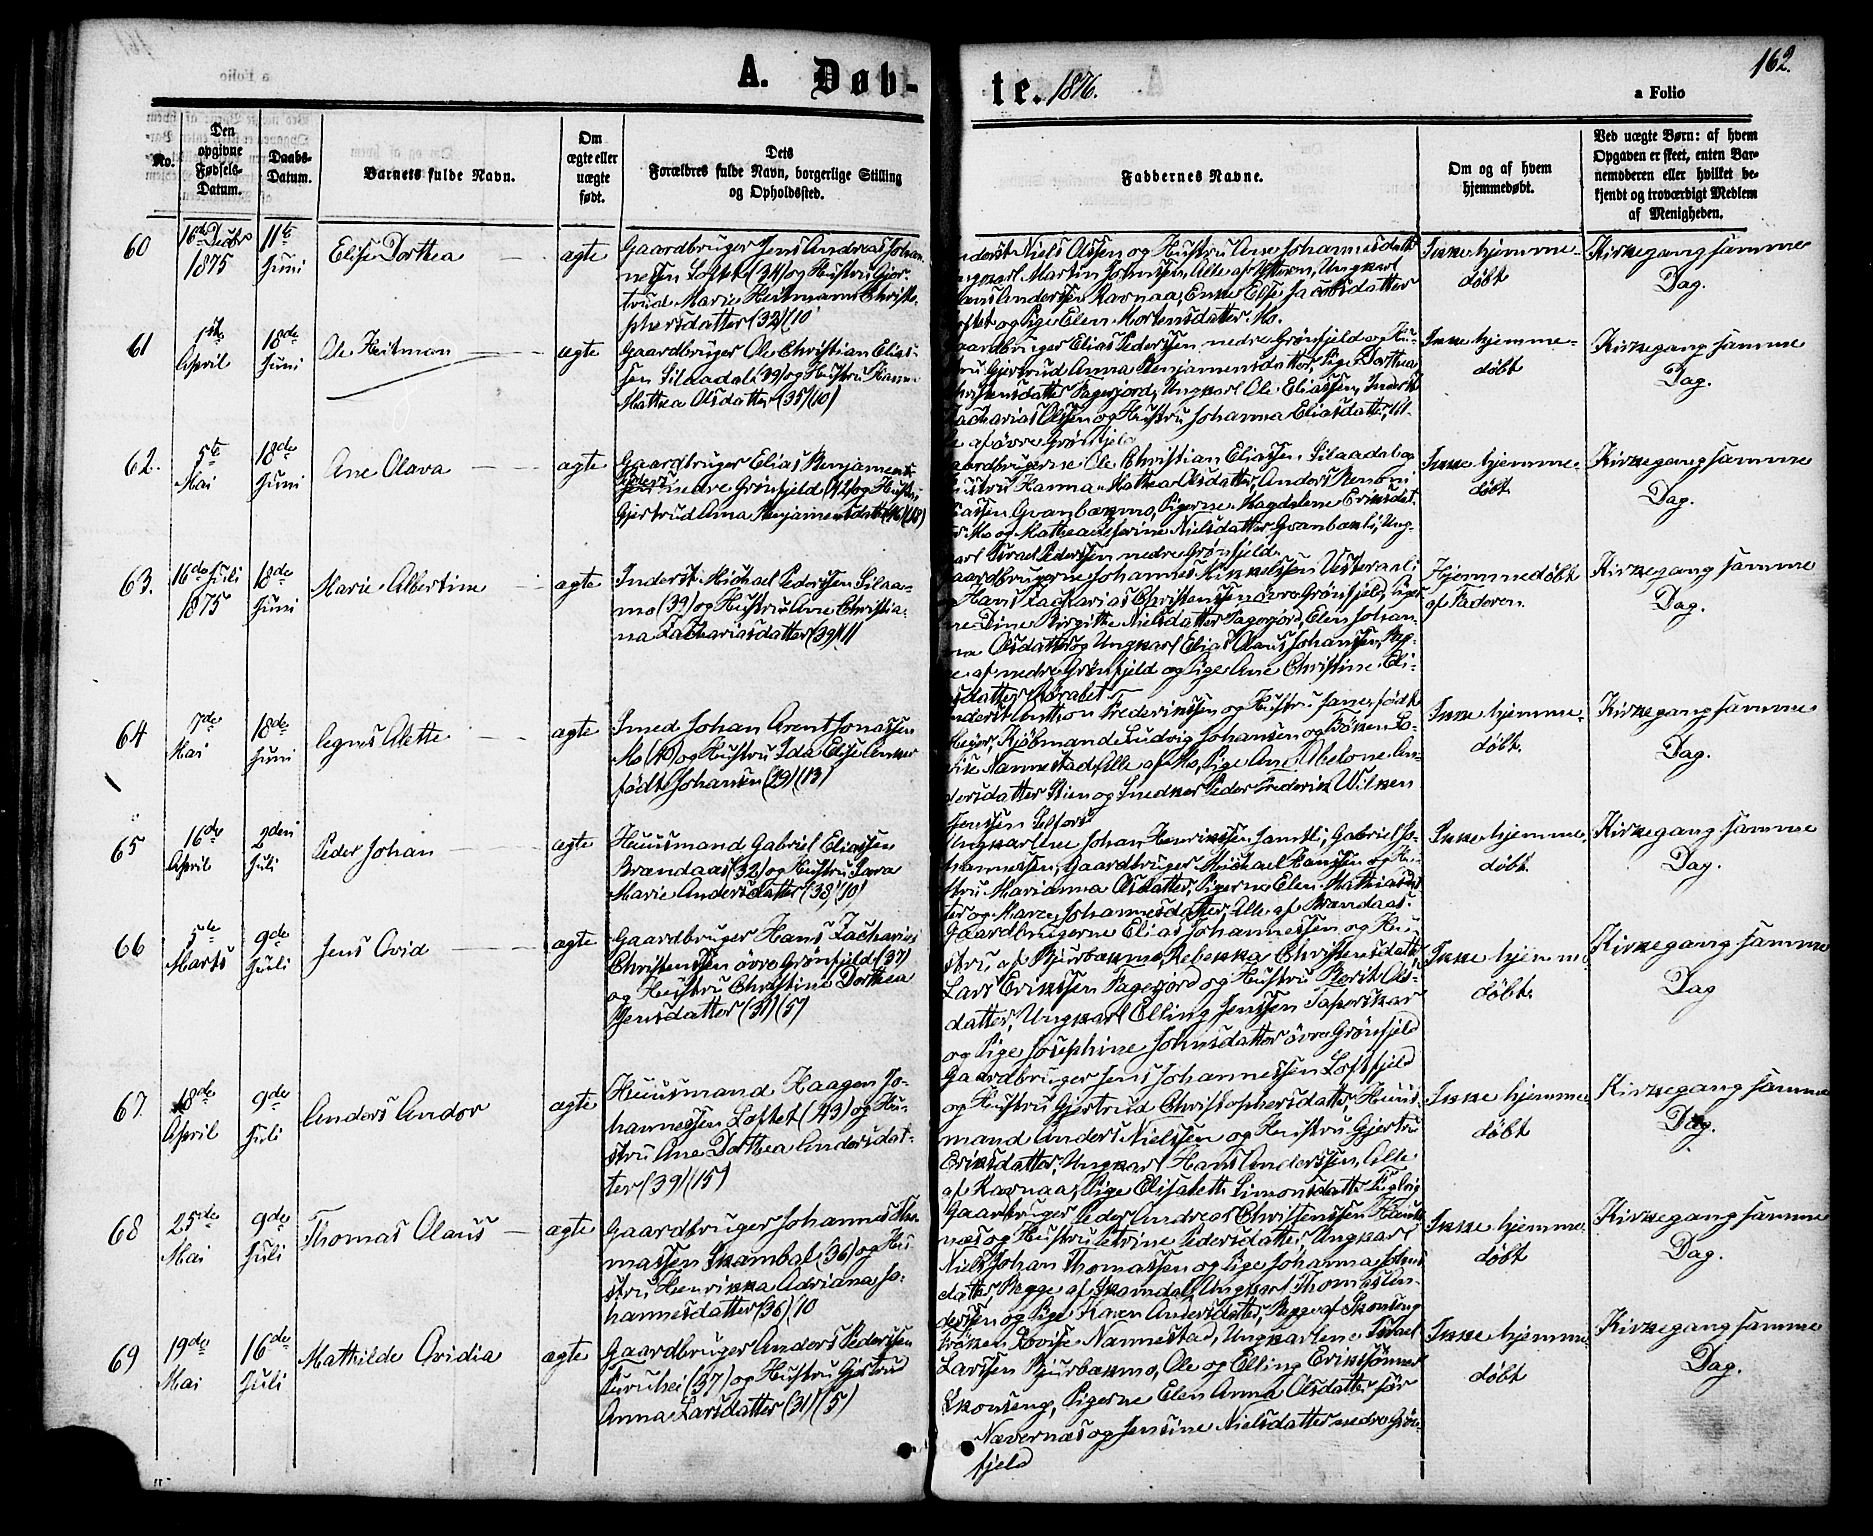 162.
A. Døb-
te. 1876.
a Folio
No.
Den
opgivne
Fødsels-
Datum.
Daabs-
Datum.
Barnets fulde Navn.
Om
ægte eller
uægte
født.
Dets
Forældres fulde Navn, borgerlige Stilling
og Opholdssted.
Faddernes Navne.
Om og af hvem
hjemmedøbt.
Ved uægte Børn: af hvem
Opgaven er skeet, enten Bar-
nemoderen eller hvilket be-
kjendt og troværdigt Medlem
af Menigheden.
60
16de Decbr
1875
11te
Juni
Elise Dorthea
ægte
Gaardbruger Jens Andreas Johan-
nessen Loftet (34) og Hustru Gjer-
trud Marie Heitmann Christo-
phersdatter (32) (10
Inderst Niels Olssen og Hustru Ane Johannesdatter
Ungkarl Martin Johnssen, Alle af Ytteren, Ungkarl
Hans Anderssen Ravnaa, Enke Else Jacobsdatter
Loftet og Pige Elen Mortensdatter Mo.
Ikke hjemme-
døbt
Kirkegang samme
Dag.
61
1ste
April
18de
Juni
Ole Heitman
ægte
Gaardbruger Ole Christian Elias-
sen Silaadal (39) og Hustru Hanna
Mathea Olsdatter (35) (10)
Gaardbruger Elias Pederssen nedre Grønfjeld og Hu-
stru Gjertrud Anna Benjaminsdatter, Pige Dorthea
Christensdatter Fagerjord, Ungkarl Ole Eliassen, Inderst
Zacharias Olssen og Hustru Johanna Eliasdatter, Al-
le af øvre Grønfjeld
Ikke hjemme-
døbt
Kirkegang samme
Dag.
62.
5te
Mai
18de
Juni
Ane Olava
ægte
Gaardbruger Elias Benjamin
Pederssen nedre Grønfjeld (42) og Hustru
Gjertrud Anna Benjaminsdatter (46) (18)
Gaardbrugerne Ole Christian Eliassen Silaadal og
Hustru Hanna Mathea Olsdatter, Anders Benon
Eliassen Granbækmo, Pigerne Magdalene Eriksdat-
ter Mo og Mathea Severine Nielsdatter Granbækli, Ung-
karl Israel Pederssen nedre Grønfjeld.
Ikke hjemme-
døbt.
Kirkegang samme
Dag.
63.
16de Juli
1875
18de
Juni
Marie Albertine
ægte
Inderst Michael Pederssen Silaa-
mo (39) og Hustru Ane Christia-
na Zachariasdatter (39) (11
Gaardbrugerne Johannes Mikkelssen Vesteraali
Hans Zacharias Christenssen øvre Grønfjeld, Piger-
ne Sine Birgitte Nielsdatter Fagerjord, Elen Johan-
na Olsdatter og Ungkarl Elias Olaus Johanssen, Beg-
ge af nedre Grønfjeld og Pige Ane Christine Eli-
asdatter
Hjemmedøbt
af Faderen.
Kirkegang samme
Dag.
64
7de
Mai
18de
Juni
Agnes Alette
ægte
Smed Johan Arent Jonassen
Mo (40) og Hustru Ida Elise Anker
født Johansen (29) (13)
Inderst Anton Frederikssen og Hustru Jane, født
Meyer, Kjøbmand Ludvig Johansen og Frøken Lo-
vise Nannestad, Alle af Mo, Pige Ane Abelone An-
dersdatter Stien og Snedker Peder Frederik Wilken
Jenssen Selfors
Ikke hjemme-
døbt.
Kirkegang samme
Dag.
65
16de
April
2den
Juli
Peder Johan
ægte
Huusmand Gabriel Eliassen
Brændaas (32) og Hustru Sara
Marie Andersdatter (38) (10)
Ungkarlene Johan Henrikssen Jamtli, Gabriel Jo-
hannessen, Gaardbruger Michael Hanssen og Hu-
stru Marianna Olsdatter, Pigerne Elen Mathiasdat-
ter og Maren Johannesdatter, Alle af Brændaas.
Ikke hjemme-
døbt.
Kirkegang samme
Dag.
66
5te
Marts
9de
Juli
Jens Ovid
ægte
Gaardbruger Hans Zacharias
Christenssen øvre Grønfjeld (37)
og Hustru Christine Dorthea
Jensdatter (31) (5)
Gaardbrugerne Elias Johannessen og Hu-
stru af Bjurbækmo, Rebekka Christensdatter
Lars Erikssen Fagerjord og Hustru Berit Ols-
datter, Ungkarl Elling Jenssen Taperskar
og Pige Josephine Johnsdatter øvre Grønfjeld
Ikke hjemme-
døbt.
Kirkegang samme
Dag
67.
18de
April
9de
Juli
Anders Andor
ægte
Huusmand Haagen Jo-
hannessen Loftet (43) og Hu-
stru Ane Dorthea Andersdat-
ter (39) (15)
Gaardbruger Jens Johannessen Loftfjeld
og Hustru Gjertrud Christophersdatter, Huus-
mand Anders Nielssen og Hustru Gjertru
Eriksdatter, Ungkarl Hans Anderssen, Alle
af Ravnaa, Pige Elisabeth Simonsdatter
Ikke hjemme-
døbt
Kirkegang samme
Dag.
68
25de
Mai
9de
Juli
Thomas Olaus
ægte
Gaardbruger Johannes Tho-
massen Skamdal (36) og Hu-
stru Henrikka Adriana Jo-
hannesdatter (36) (10
Gaardbruger Peder Andreas Christenssen Hauk-
næs og Hustru Petrine Pedersdatter, Ungkarl
Niels Johan Thomassen og Pige Johanna Johns-
datter, Begge af Skamdal, Ungkarl Thomas An-
derssen og Pige Karen Andersdatter, Begge af Skonseng
Ikke hjemme-
døbt
Kirkegang samme
Dag.
69
19de
Mai
16de
Juli
Mathilde Ovidia
ægte
Gaardbruger Anders Pederssen
Furuhei (37) og Hustru Gjertrud
Anna Larsdatter (31) (5)
Frøken Lovise Nannestad, Ungkarlene Israel
Larssen Bjurbækmo, Ole og Elling Erikssønner
Skonseng, Pigerne Elen Anna Olsdatter sør
Nævernæs og Jensine Nielsdatter nedre Grøn-
fjeld
Ikke hjemme-
døbt
Kirkegang samme
Dag.